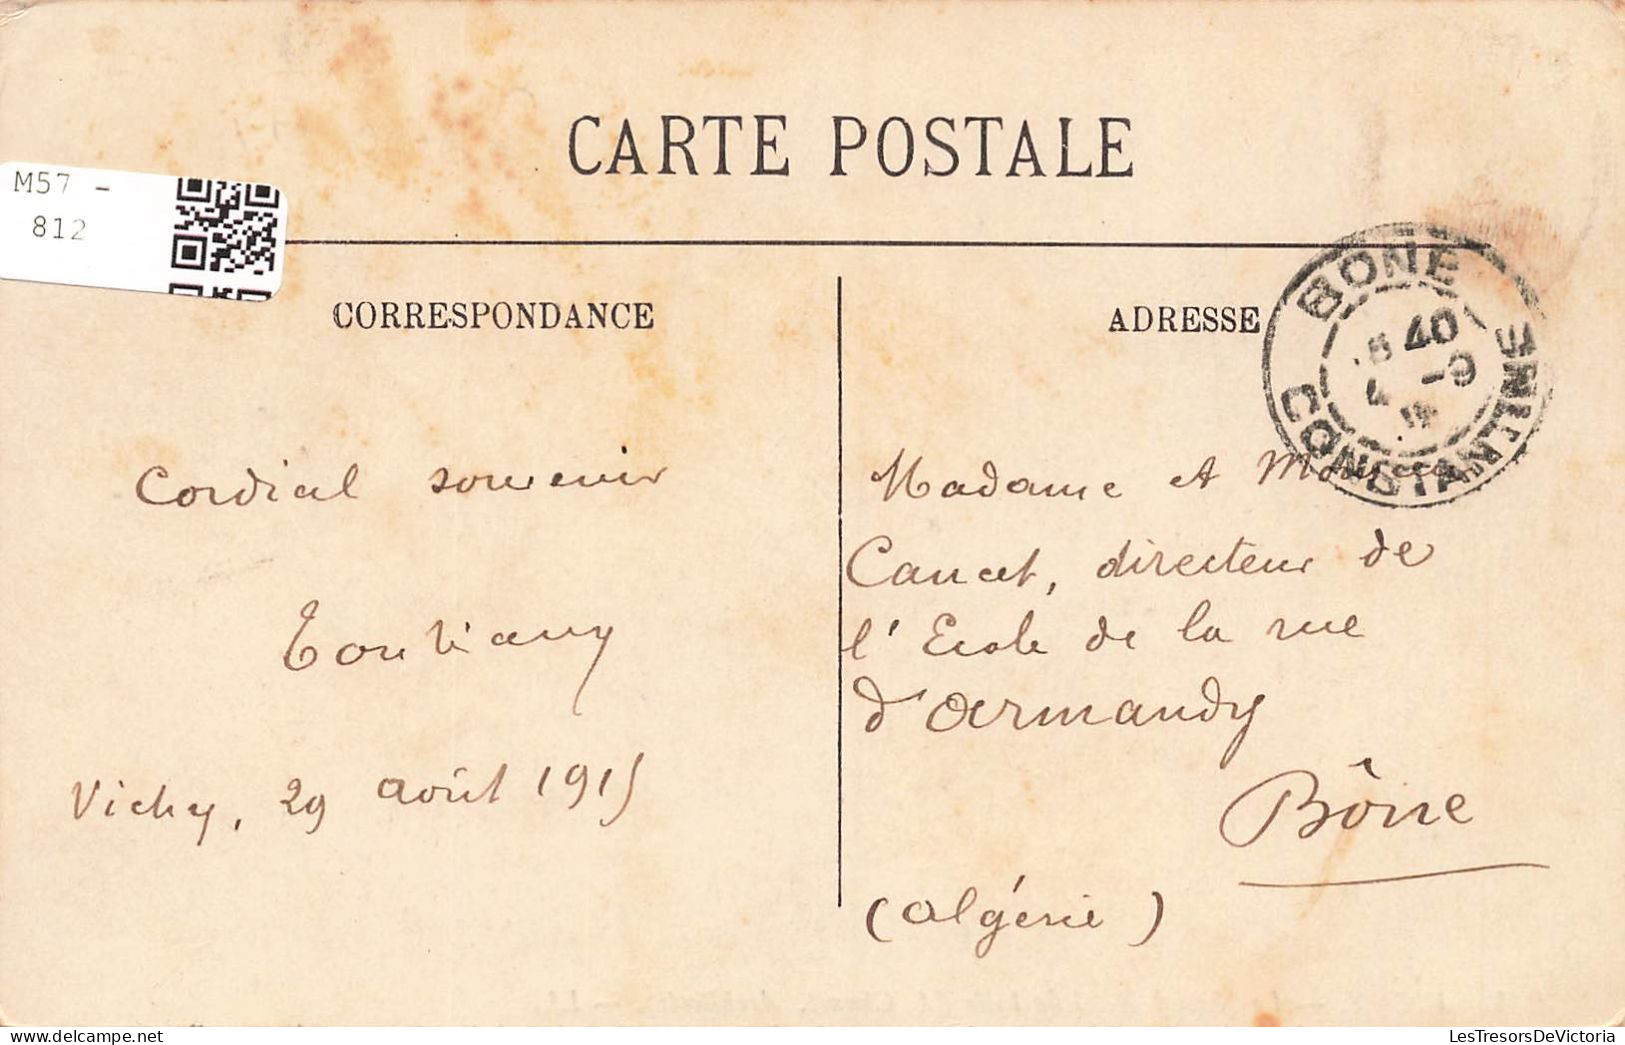 CARTE POSTALE
M57 -
812
CORRESPONDANCE
ADRESSE
BONE
CONSTANTINE
Cordial souvenir
Vichy, 29 août 1915
Madame et
Cancet, directeur de
l'Ecole de la rue
d'Armandy
Bône
(Algérie)
LesTresorsDeVictoria